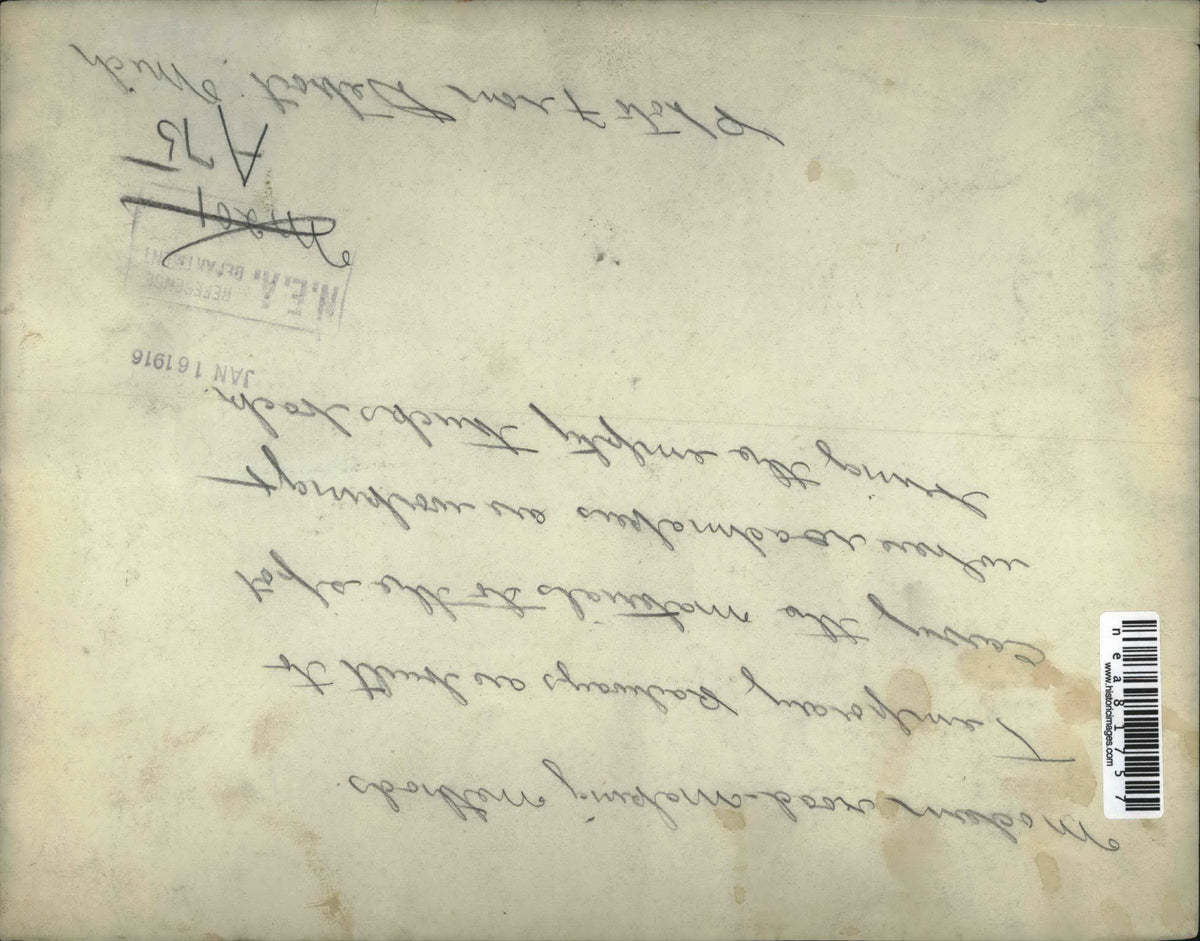 Modern road-making methods.
Temporary Railways are built to
Carry the materials to the spot
where roadmakers are working +
bring the empty trucks back.
JAN 16 1916
REFERENCE
N.E.A. DEPARTMENT
A 75
Photo From Detroit Mich
nea81757
www.historicimages.com